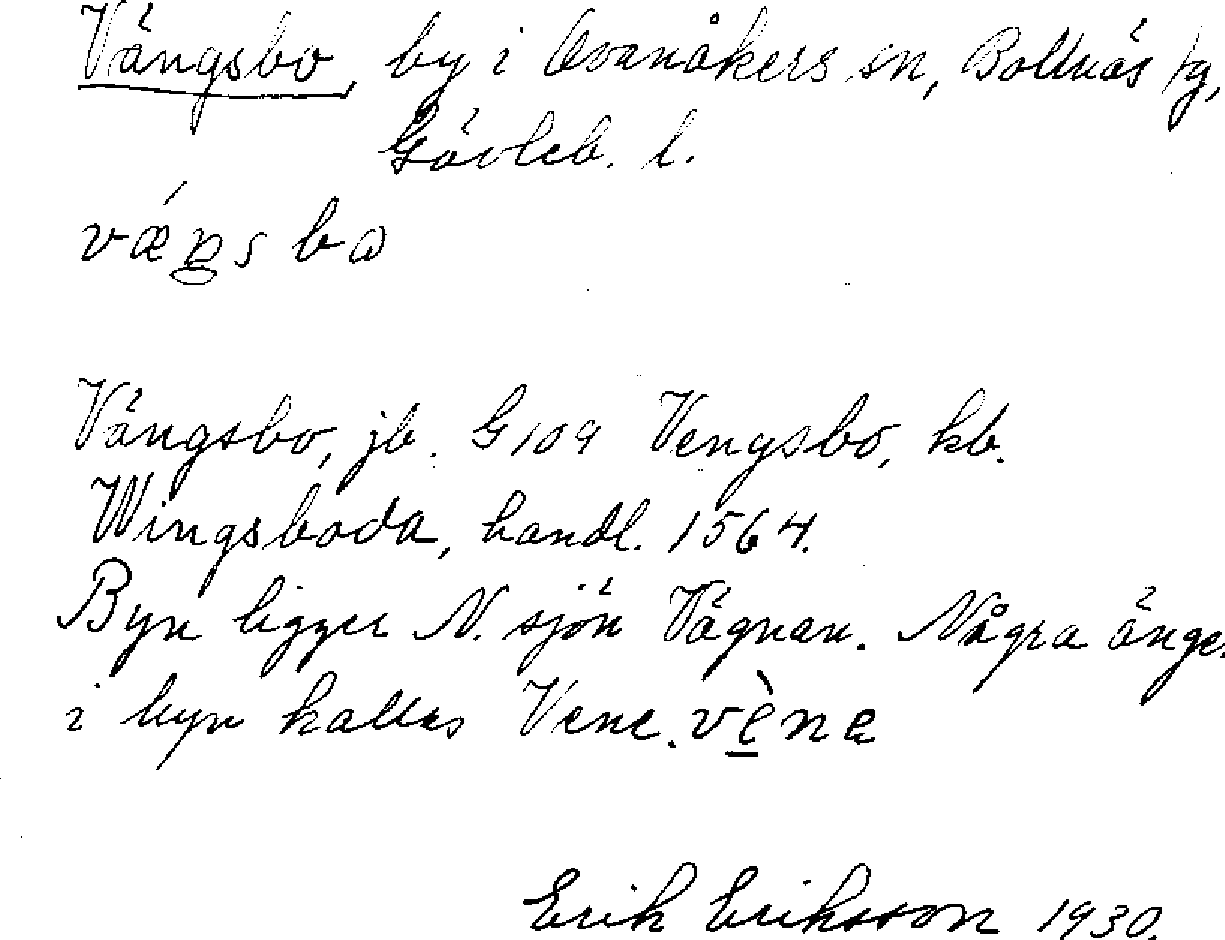 Vängsbo, by i Ovanåkers sn, Bollnäs fg,
Gävleb. l.
vǽŋsbɷ
Vängsbo, jb. G 109 Vengsbo, kb.
Wingsboda, handl. 1564.
Byn ligger N. sjön Vägnan. Några änge
i byn kallas Vene. vène
Erik Eriksson 1930.